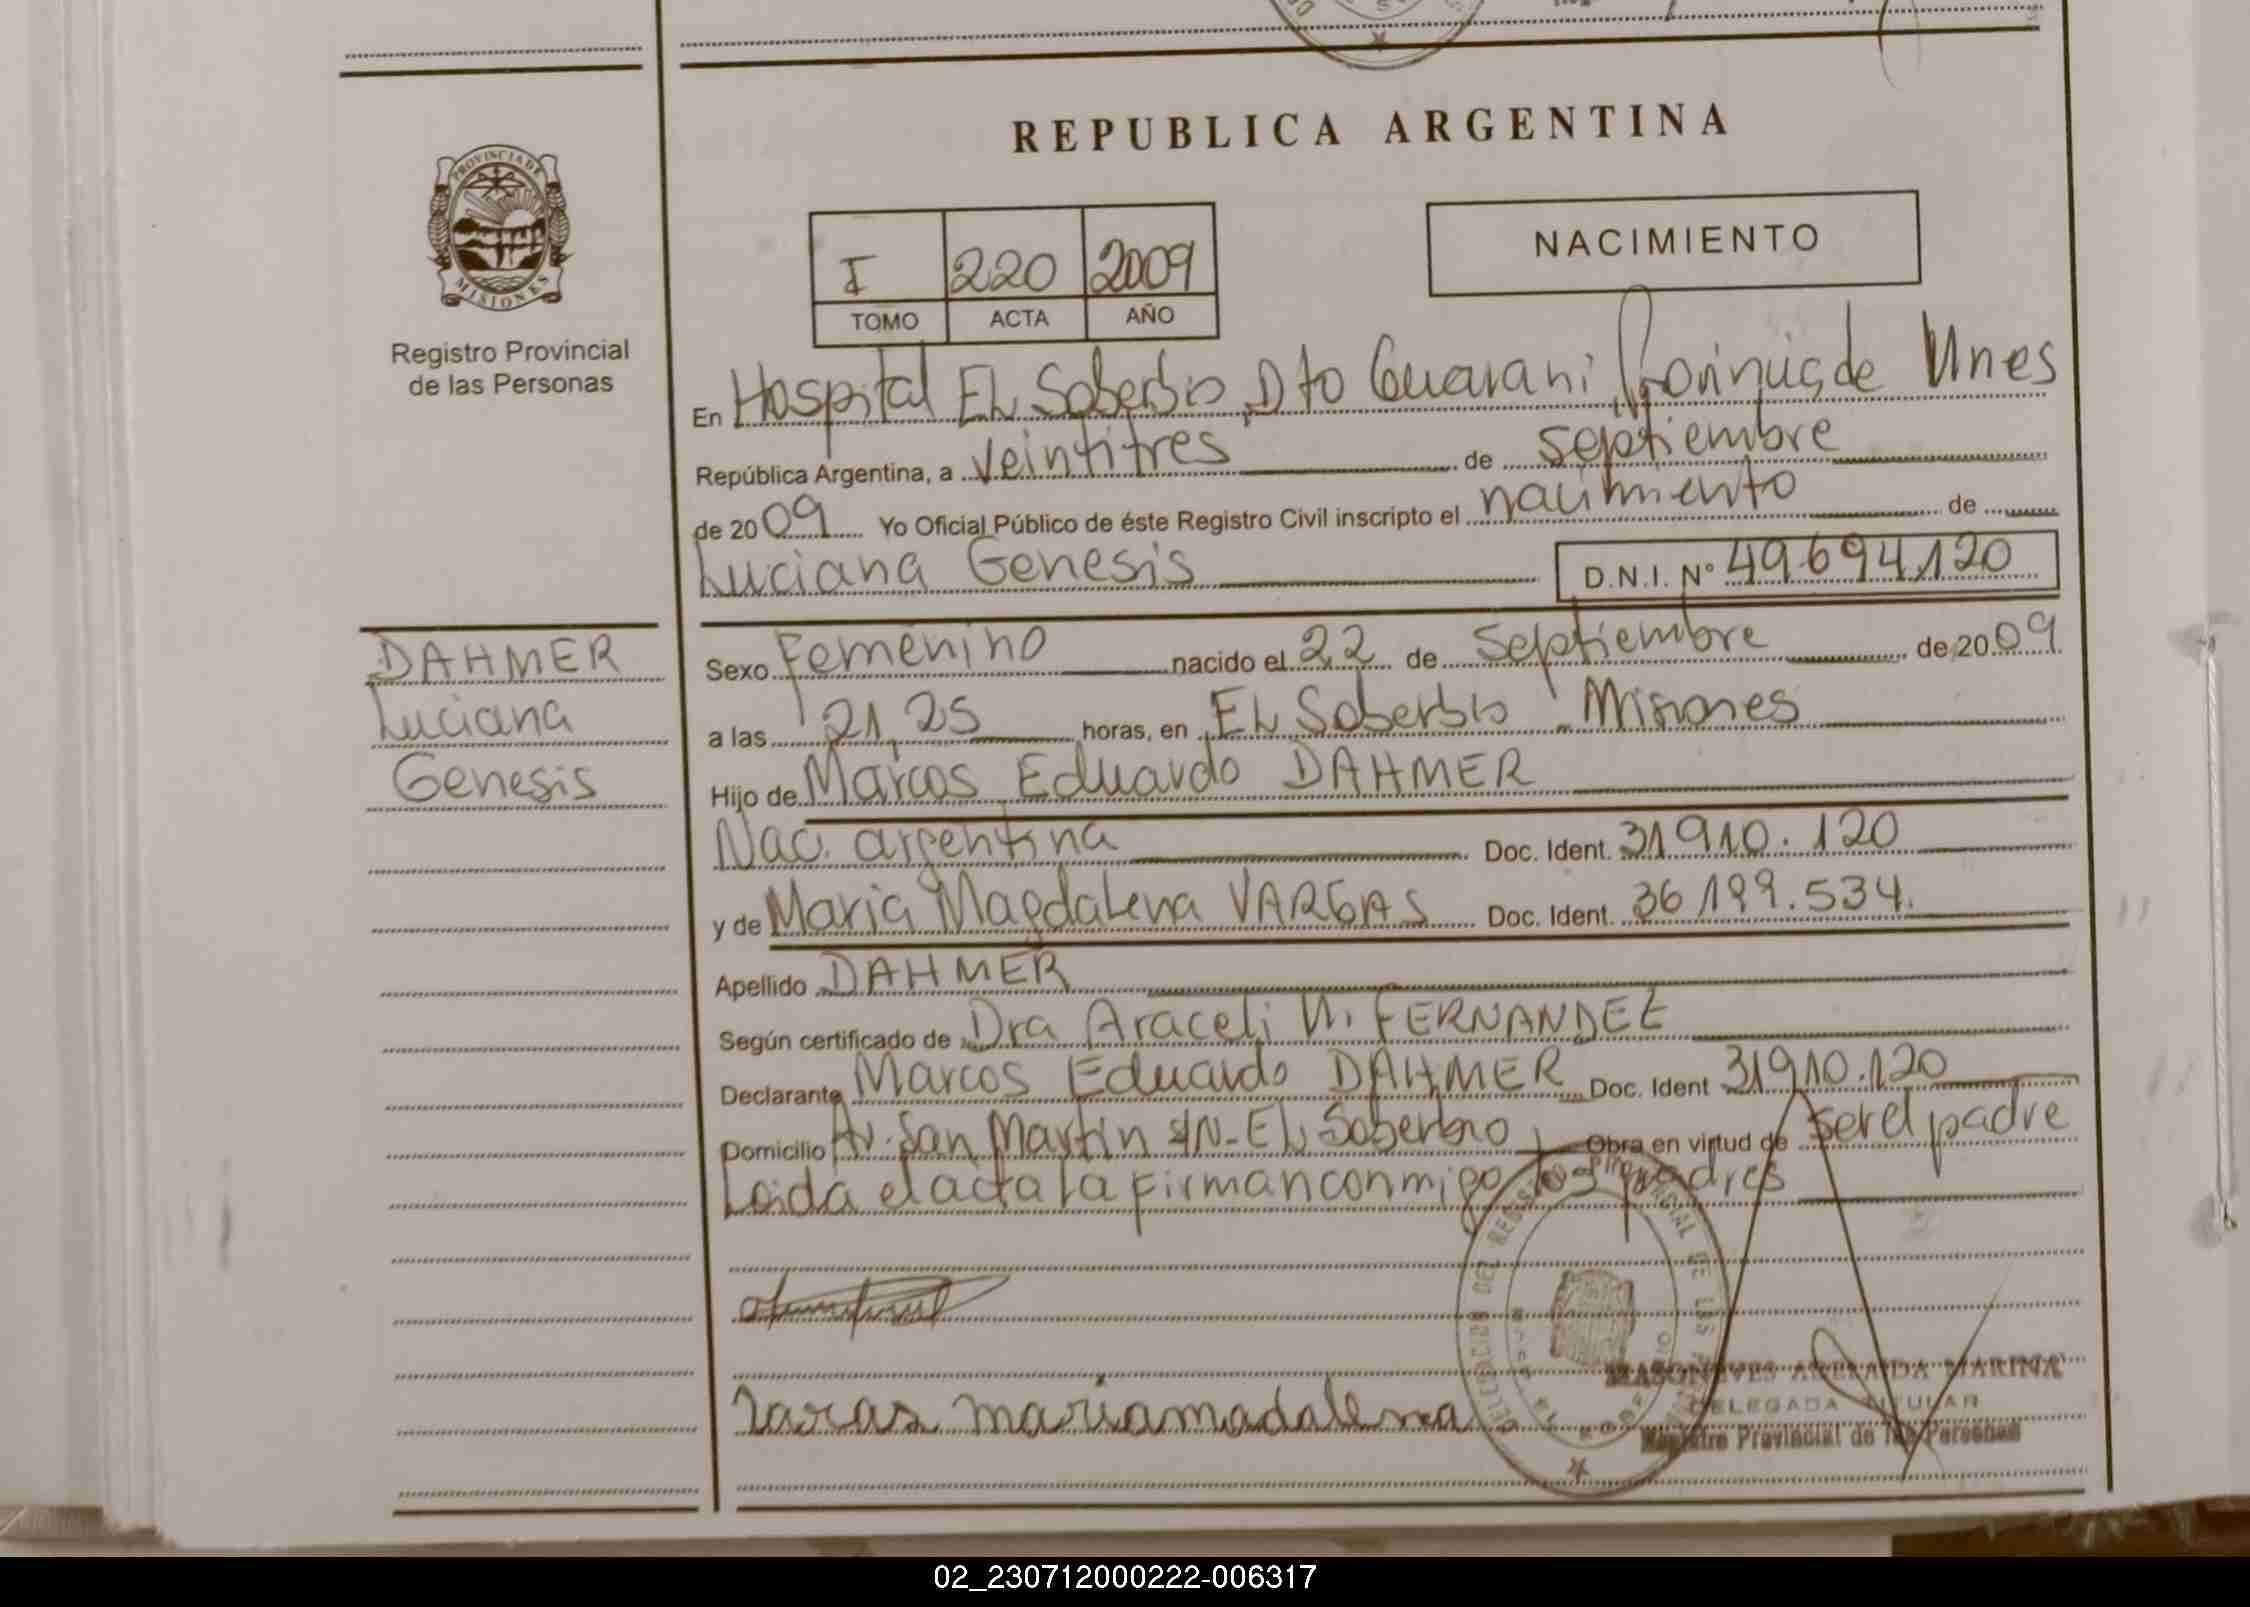 REPUBLICA ARGENTINA
PROVINCIA DE
MISIONES
Registro Provincial
de las Personas
I 220 2009
TOMO ACTA AÑO
NACIMIENTO
En Hospital El Soberbio, Dto Guarani, Provincia de Mnes
República Argentina, a veintitres de septiembre
de 2009 Yo Oficial Público de éste Registro Civil inscripto el nacimiento de
Luciana Genesis D.N.I. Nº 49.694.120
DAHMER
Luciana
Genesis
Sexo Femenino nacido el 22 de Septiembre de 2009
a las 21,25 horas, en El Soberbio Misiones
Hijo de Marcos Eduardo DAHMER
Nac. argentina Doc. Ident. 31910.120
y de Maria Magdalena VARGAS Doc. Ident. 36199.534.
Apellido DAHMER
Según certificado de Dra Araceli FERNANDEZ
Declarante Marcos Eduardo DAHMER Doc. Ident 31910.120
Domicilio Av. San Martin S/N - El Soberbio Obra en virtud de ser el padre
Leida el acta la firman conmigo los padres
mariamadalena
DELEGADA TITULAR
Registro Provincial de las Personas
02_230712000222-006317